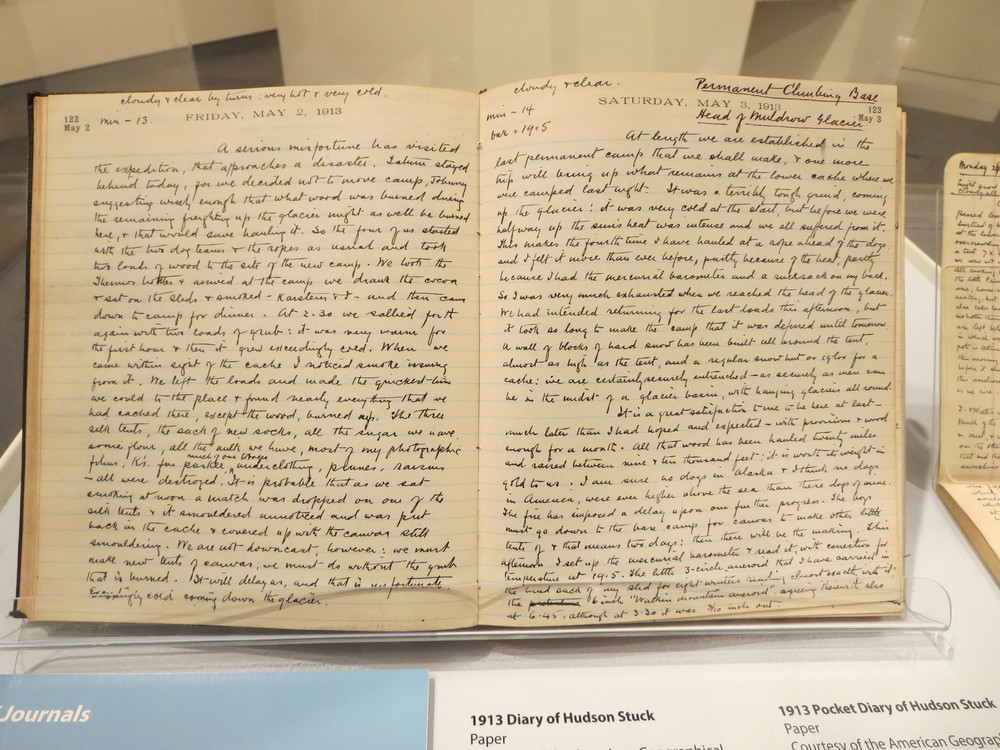 cloudy & clear by turns: very hot & very cold.
122
May 2
min - 13.
FRIDAY, MAY 2, 1913
A serious misfortune has visited
the expedition, that approaches a disaster. Tatum stayed
behind today, for we decided not to move camp, Johnny
suggesting wisely enough that what wood was burned during
the remaining freighting up the glacier might as well be burned
here, & that would save hauling it. So the four of us started
with the two dog teams & the ropes as usual and took
two loads of wood to the site of the new camp. We took the
Thermos bottles & arrived at the camp we drank the cocoa
& sat on the sleds & smoked - Karstens & I - and then came
down to camp for dinner. At 2.30 we sallied forth
again with two loads of grub: it was very warm for
the first hour & then it grew exceedingly cold. When we
came within sight of the cache I noticed smoke issuing
from it. We left the loads and made the quickest time
we could to the place & found nearly everything that we
had cached there, except the wood, burned up. The three
silk tents, the sack of new socks, all the sugar we have,
some flour, all the milk we have, most of my photographic
films, K's. fine parkee, much of our underclothing, prunes, raisins
- all were destroyed. It is probable that as we sat
smoking at noon a match was dropped on one of the
silk tents & it smouldered unnoticed and was put
back in the cache & covered up with the canvas still
smouldering. We are not downcast, however: we must
make new tents of canvas; we must do without the grub
that is burned. It will delay us, and that is unfortunate.
cold coming down the glacier.
cloudy & clear.
Permanent Climbing Base
SATURDAY, MAY 3, 1913
123
May 3
min - 14
Head of Muldrow Glacier
bar. 19.5
At length we are established in the
last permanent camp that we shall make, & one more
trip will bring up what remains at the lower cache where we
were camped last night. It was a terribly tough grind, coming
up the glacier: it was very cold at the start, but before we were
halfway up the sun's heat was intense and we all suffered from it.
This makes the fourth time I have hauled at a rope ahead of the dogs
and I felt it more than ever before, partly because of the heat, partly
because I had the mercurial barometer and a rucksack on my back.
So I was very much exhausted when we reached the head of the glacier.
We had intended returning for the last loads this afternoon, but
it took so long to make the camp that it was deferred until tomorrow.
A wall of blocks of hard snow has been built all around the tent,
almost as high as the tent, and a regular snow hut or igloo for a
cache: we are certainly securely entrenched - as securely as men can
be in the midst of a glacier basin, with hanging glaciers all round.
It is a great satisfaction to me to be here at last -
much later than I had hoped and expected - with provisions & wood
enough for a month. All that wood has been hauled twenty miles
and raised between nine & ten thousand feet; it is worth its weight in
gold to us. I am sure no dogs in Alaska & I think no dogs
in America, were ever higher above the sea than these dogs of mine.
The fire has imposed a delay upon our further progress. The boys
must go down to the base camp for canvas to make other little
tents of & that means two days: then there will be the making. This
afternoon I set up the mercurial barometer & read it, with correction for
temperature at 19.5. The little 3-circle aneroid that I have carried in
the hind sack of my sled for eight winters reading almost exactly with it:
the 6 inch "Watkin mountain aneroid", agreeing therewith also
at 6.45, although at 3.30 it was 3/10 inch out.
Journals
1913 Diary of Hudson Stuck
Paper
1913 Pocket Diary of Hudson Stuck
Paper
Courtesy of the American Geograp